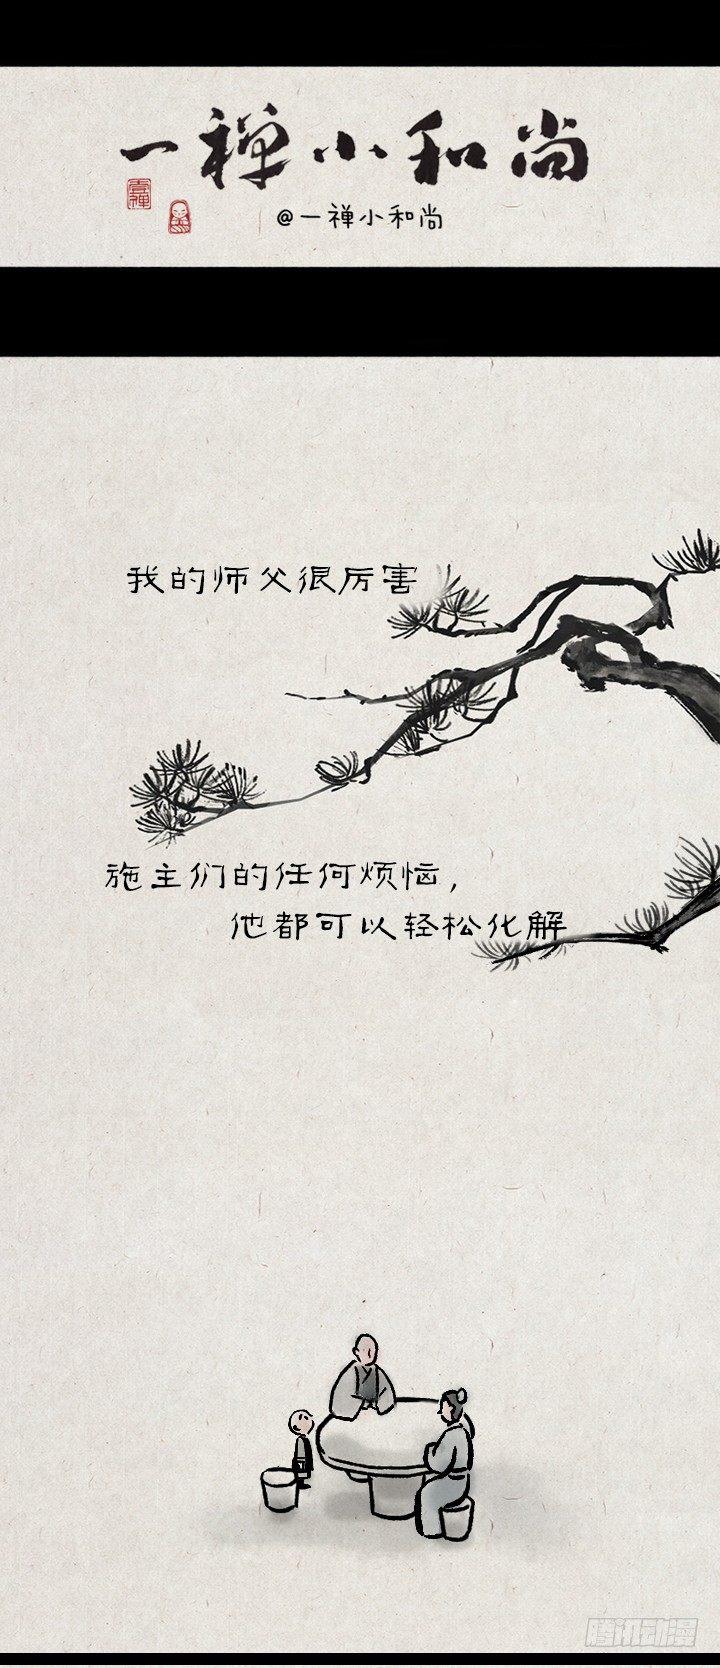 一禅小和尚
壹禅
@一禅小和尚
我的师父很厉害
施主们的任何烦恼，
他都可以轻松化解
腾讯动漫